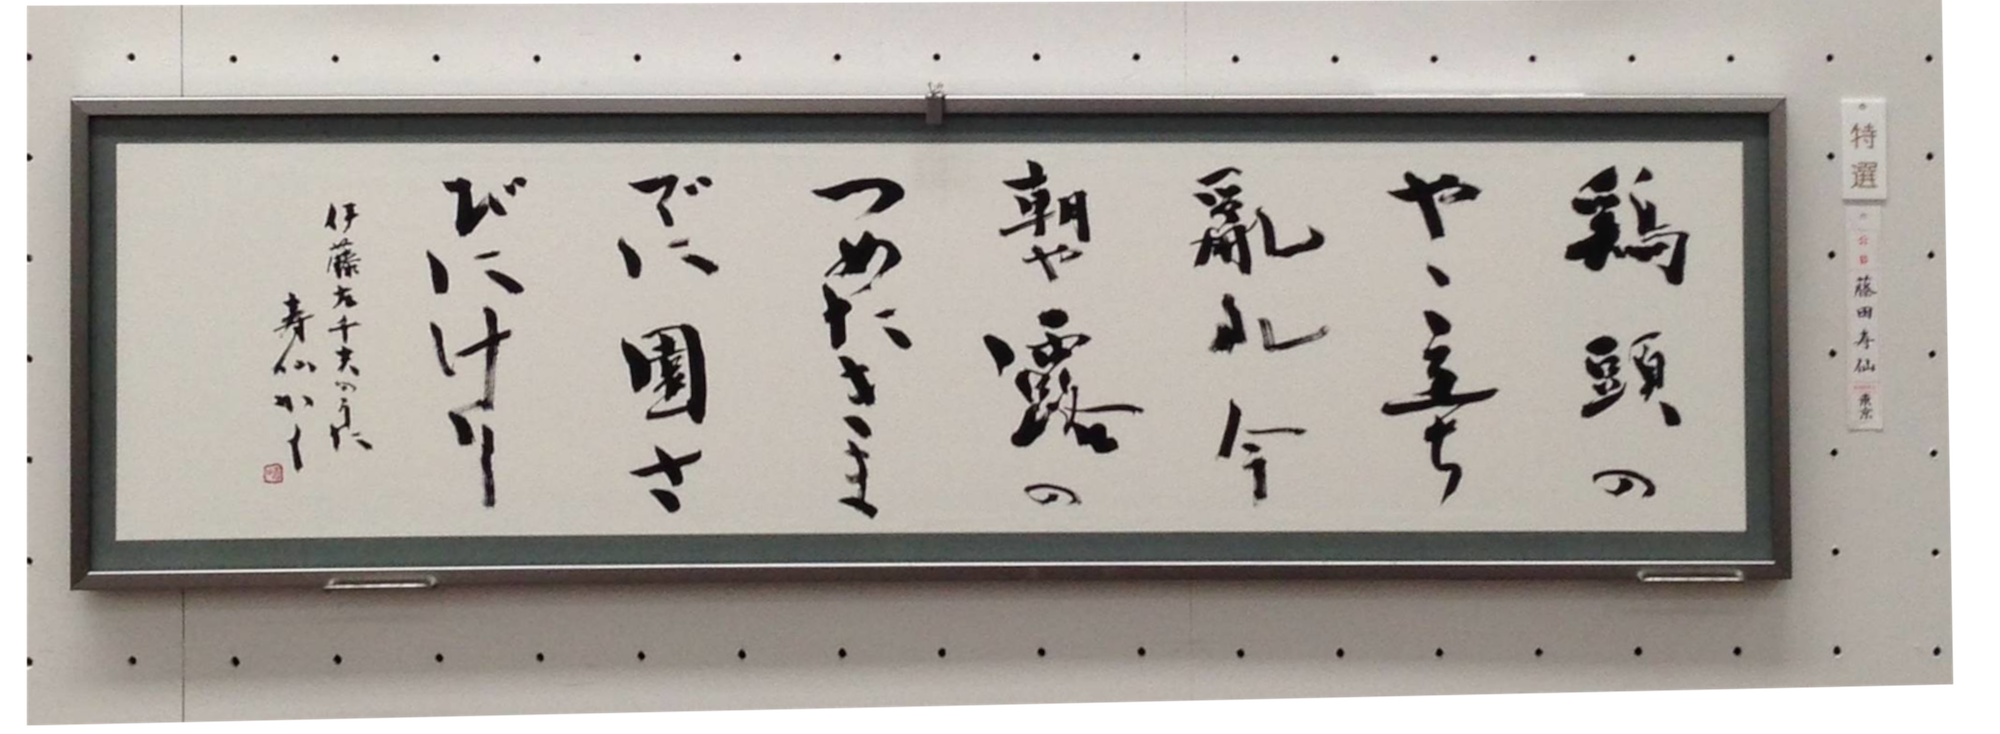 鶏頭の
やゝ立ち
亂れ今
朝や露の
つめたきま
でに園さ
びにけり
伊藤左千夫のうた
寿仙かく
特選
公募
藤田寿仙
東京